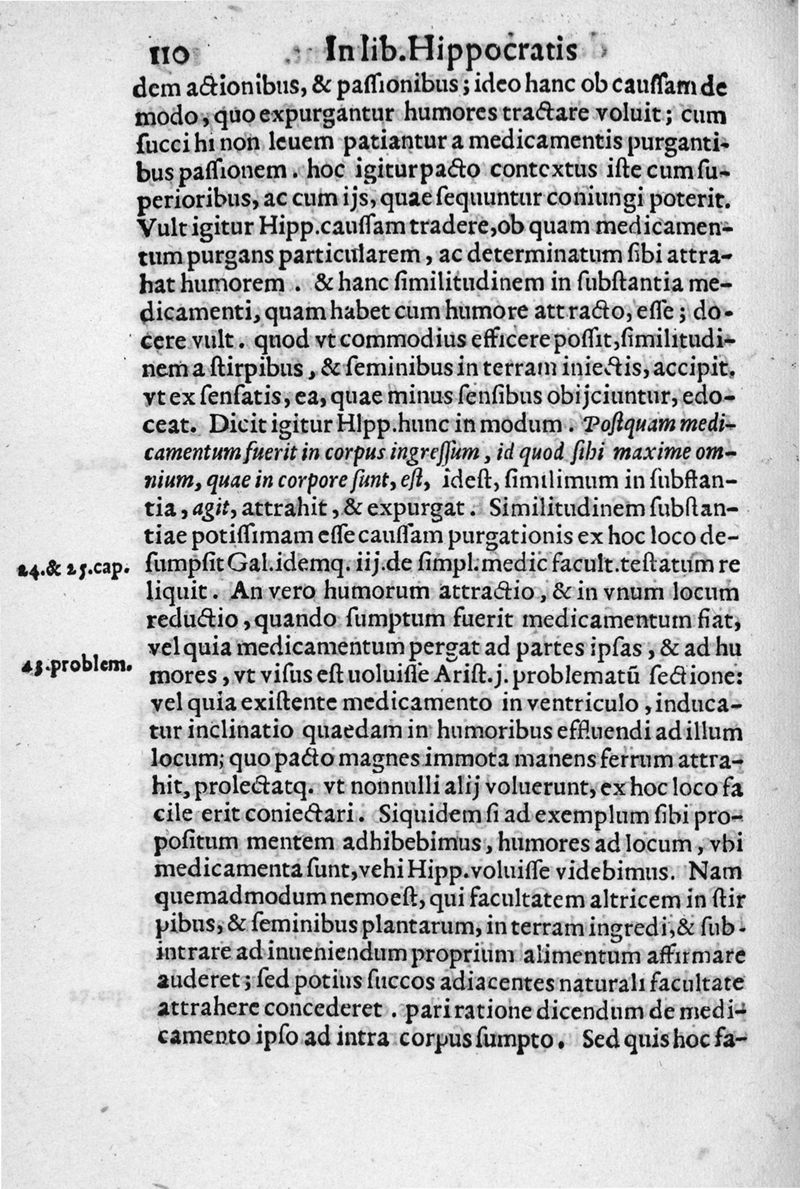 110 In lib. Hippocratis
dem actionibus, & paſſionibus; ideo hanc ob cauſſam de
modo, quo expurgantur humores tractare voluit; cum
ſucci hi non leuem patiantur a medicamentis purganti-
bus paſſionem. hoc igitur pacto contextus iſte cum ſu-
perioribus, ac cum ijs, quae ſequuntur coniungi poterit.
Vult igitur Hipp. cauſſam tradere, ob quam medicamen-
tum purgans particularem, ac determinatum ſibi attra-
hat humorem. & hanc ſimilitudinem in ſubſtantia me-
dicamenti, quam habet cum humore attracto, eſſe; do-
cere vult. quod vt commodius efficere poſſit, ſimilitudi-
nem a ſtirpibus, & ſeminibus in terram iniectis, accipit.
vt ex ſenſatis, ea, quae minus ſenſibus obijciuntur, edo-
ceat. Dicit igitur HIpp. hunc in modum. Poſtquam medi-
camentum fuerit in corpus ingreſſum, id quod ſibi maxime om-
nium, quae in corpore ſunt, eſt, ideſt, ſimilimum in ſubſtan-
tia, agit, attrahit, & expurgat. Similitudinem ſubſtan-
tiae potiſſimam eſſe cauſſam purgationis ex hoc loco de-
24. & 25. cap. ſumpſit Gal. idemq. iij. de ſimpl. medic facult. teſtatum re
liquit. An vero humorum attractio, & in vnum locum
reductio, quando ſumptum fuerit medicamentum fiat,
vel quia medicamentum pergat ad partes ipſas, & ad hu
43. problem. mores, vt viſus eſt uoluiſſe Ariſt. j. problematū ſectione:
vel quia exiſtente medicamento in ventriculo, induca-
tur inclinatio quaedam in humoribus effluendi ad illum
locum; quo pacto magnes immota manens ferrum attra-
hit, prolectatq. vt nonnulli alij voluerunt, ex hoc loco fa
cile erit coniectari. Siquidem ſi ad exemplum ſibi pro-
poſitum mentem adhibebimus, humores ad locum, vbi
medicamenta ſunt, vehi Hipp. voluiſſe videbimus. Nam
quemadmodum nemo eſt, qui facultatem altricem in ſtir
pibus, & ſeminibus plantarum, in terram ingredi, & ſub-
intrare ad inueniendum proprium alimentum affirmare
auderet; ſed potius ſuccos adiacentes naturali facultate
attrahere concederet. pari ratione dicendum de medi-
camento ipſo ad intra corpus ſumpto. Sed quis hoc fa-